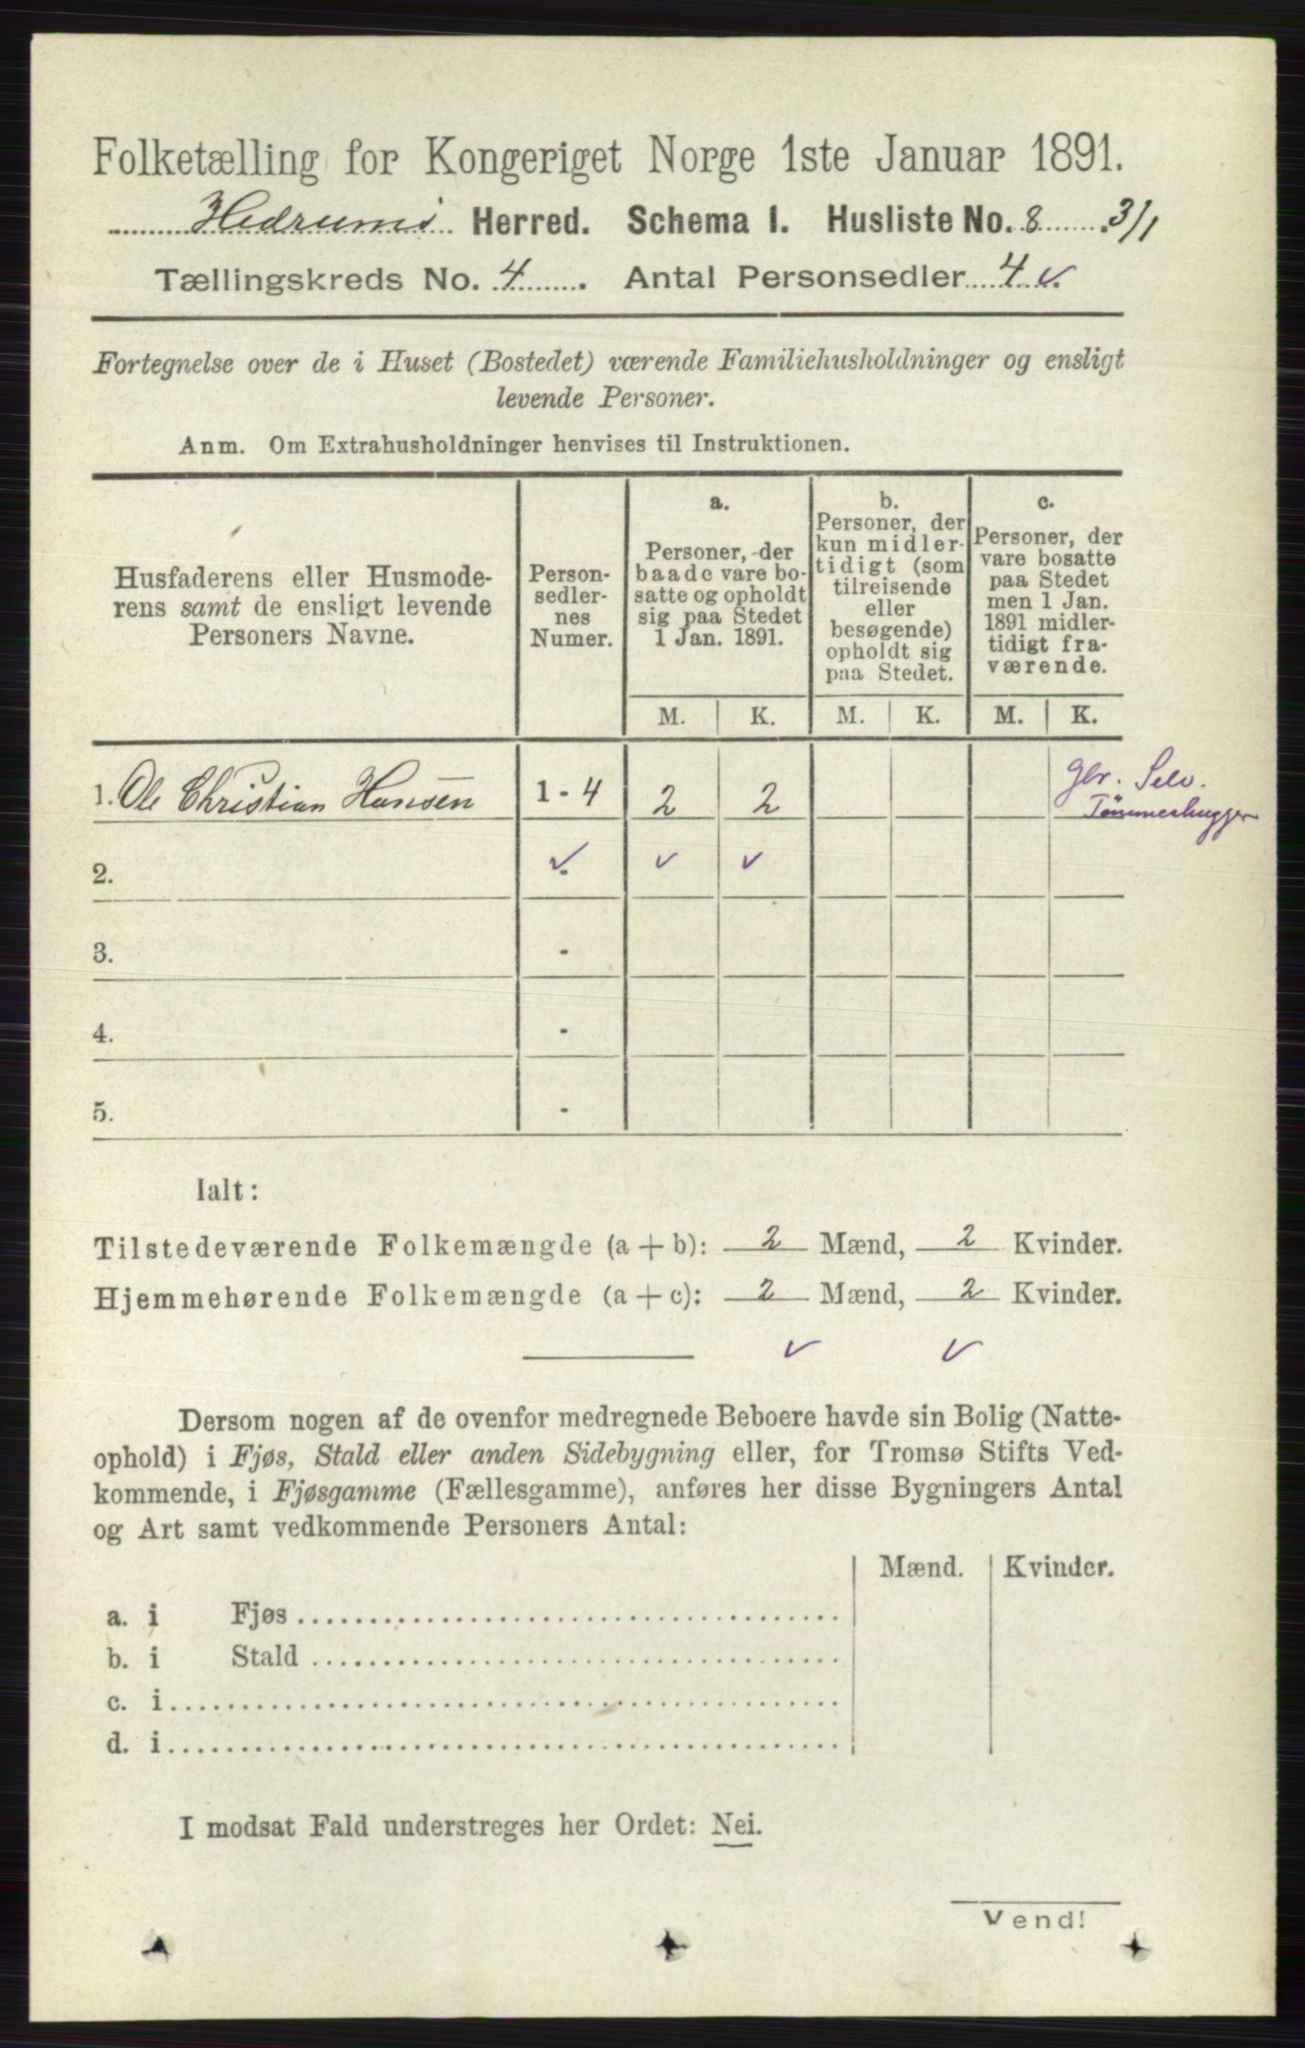 Folketælling for Kongeriget Norge 1ste Januar 1891.
Hedrums Herred. Schema I. Husliste No. 8 3/1
Tællingskreds No. 4. Antal Personsedler 4 ✓
Fortegnelse over de i Huset (Bostedet) værende Familiehusholdninger og ensligt
levende Personer.
Anm. Om Extrahusholdninger henvises til Instruktionen.
Husfaderens eller Husmode-
rens samt de ensligt levende
Personers Navne.
Person-
sedler-
nes
Numer.
a.
Personer, der
baade vare bo-
satte og opholdt
sig paa Stedet
1 Jan. 1891.
b.
Personer, der
kun midler-
tidigt (som
tilreisende
eller
besøgende)
opholdt sig
paa Stedet.
c.
Personer, der
vare bosatte
paa Stedet
men 1 Jan.
1891 midler-
tidigt fra-
værende.
M. K. M. K. M. K.
1. Ole Christian Hansen 1 - 4 2 2 Gbr. Selv.
Tømmerhugger
2. ✓ ✓ ✓
3. -
4. -
5. -
Ialt:
Tilstedeværende Folkemængde (a + b): 2 Mænd, 2 Kvinder.
Hjemmehørende Folkemængde (a + c): 2 Mænd, 2 Kvinder.
✓ ✓
Dersom nogen af de ovenfor medregnede Beboere havde sin Bolig (Natte-
ophold) i Fjøs, Stald eller anden Sidebygning eller, for Tromsø Stifts Ved-
kommende, i Fjøsgamme (Fællesgamme), anføres her disse Bygningers Antal
og Art samt vedkommende Personers Antal:
Mænd. Kvinder.
a. i Fjøs
b. i Stald
c. i
d. i
I modsat Fald understreges her Ordet: Nei.
Vend!